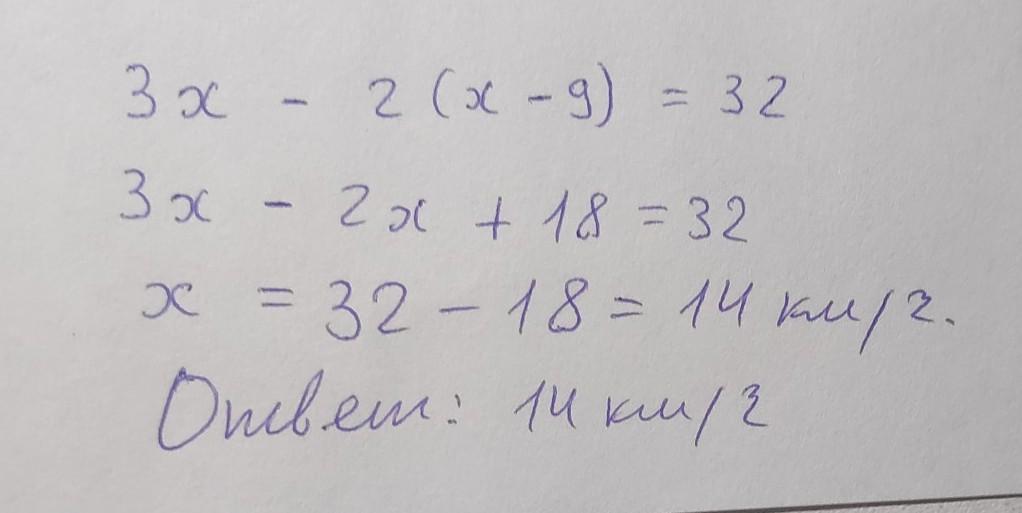 3x - 2(x - 9) = 32
3x - 2x + 18 = 32
x = 32 - 18 = 14 км/ч.
Ответ: 14 км/ч